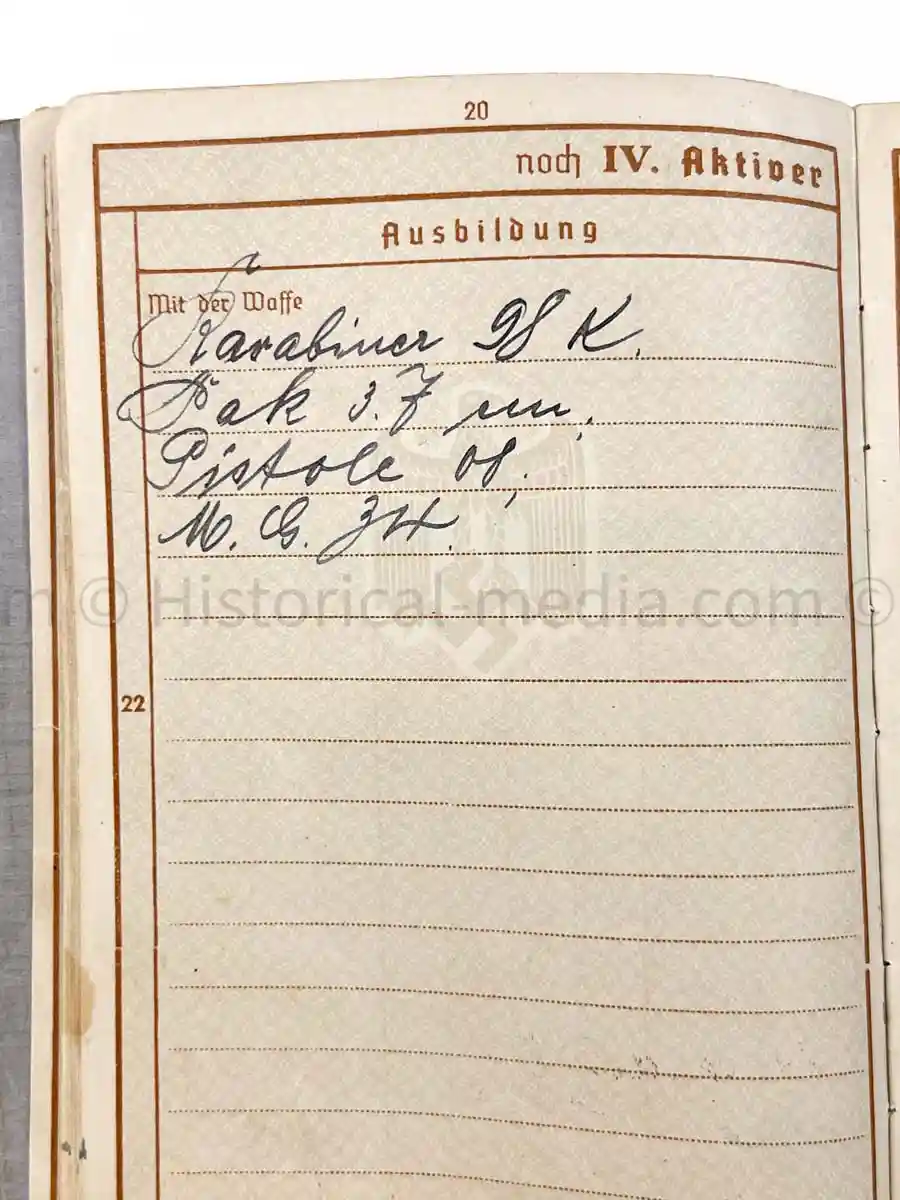 20
noch IV. Aktiver
Ausbildung
Mit der Waffe
Karabiner 98 K.
Pak 3.7 cm,
Pistole 08,
M. G. 34.
m © Historical-media.com ©
22